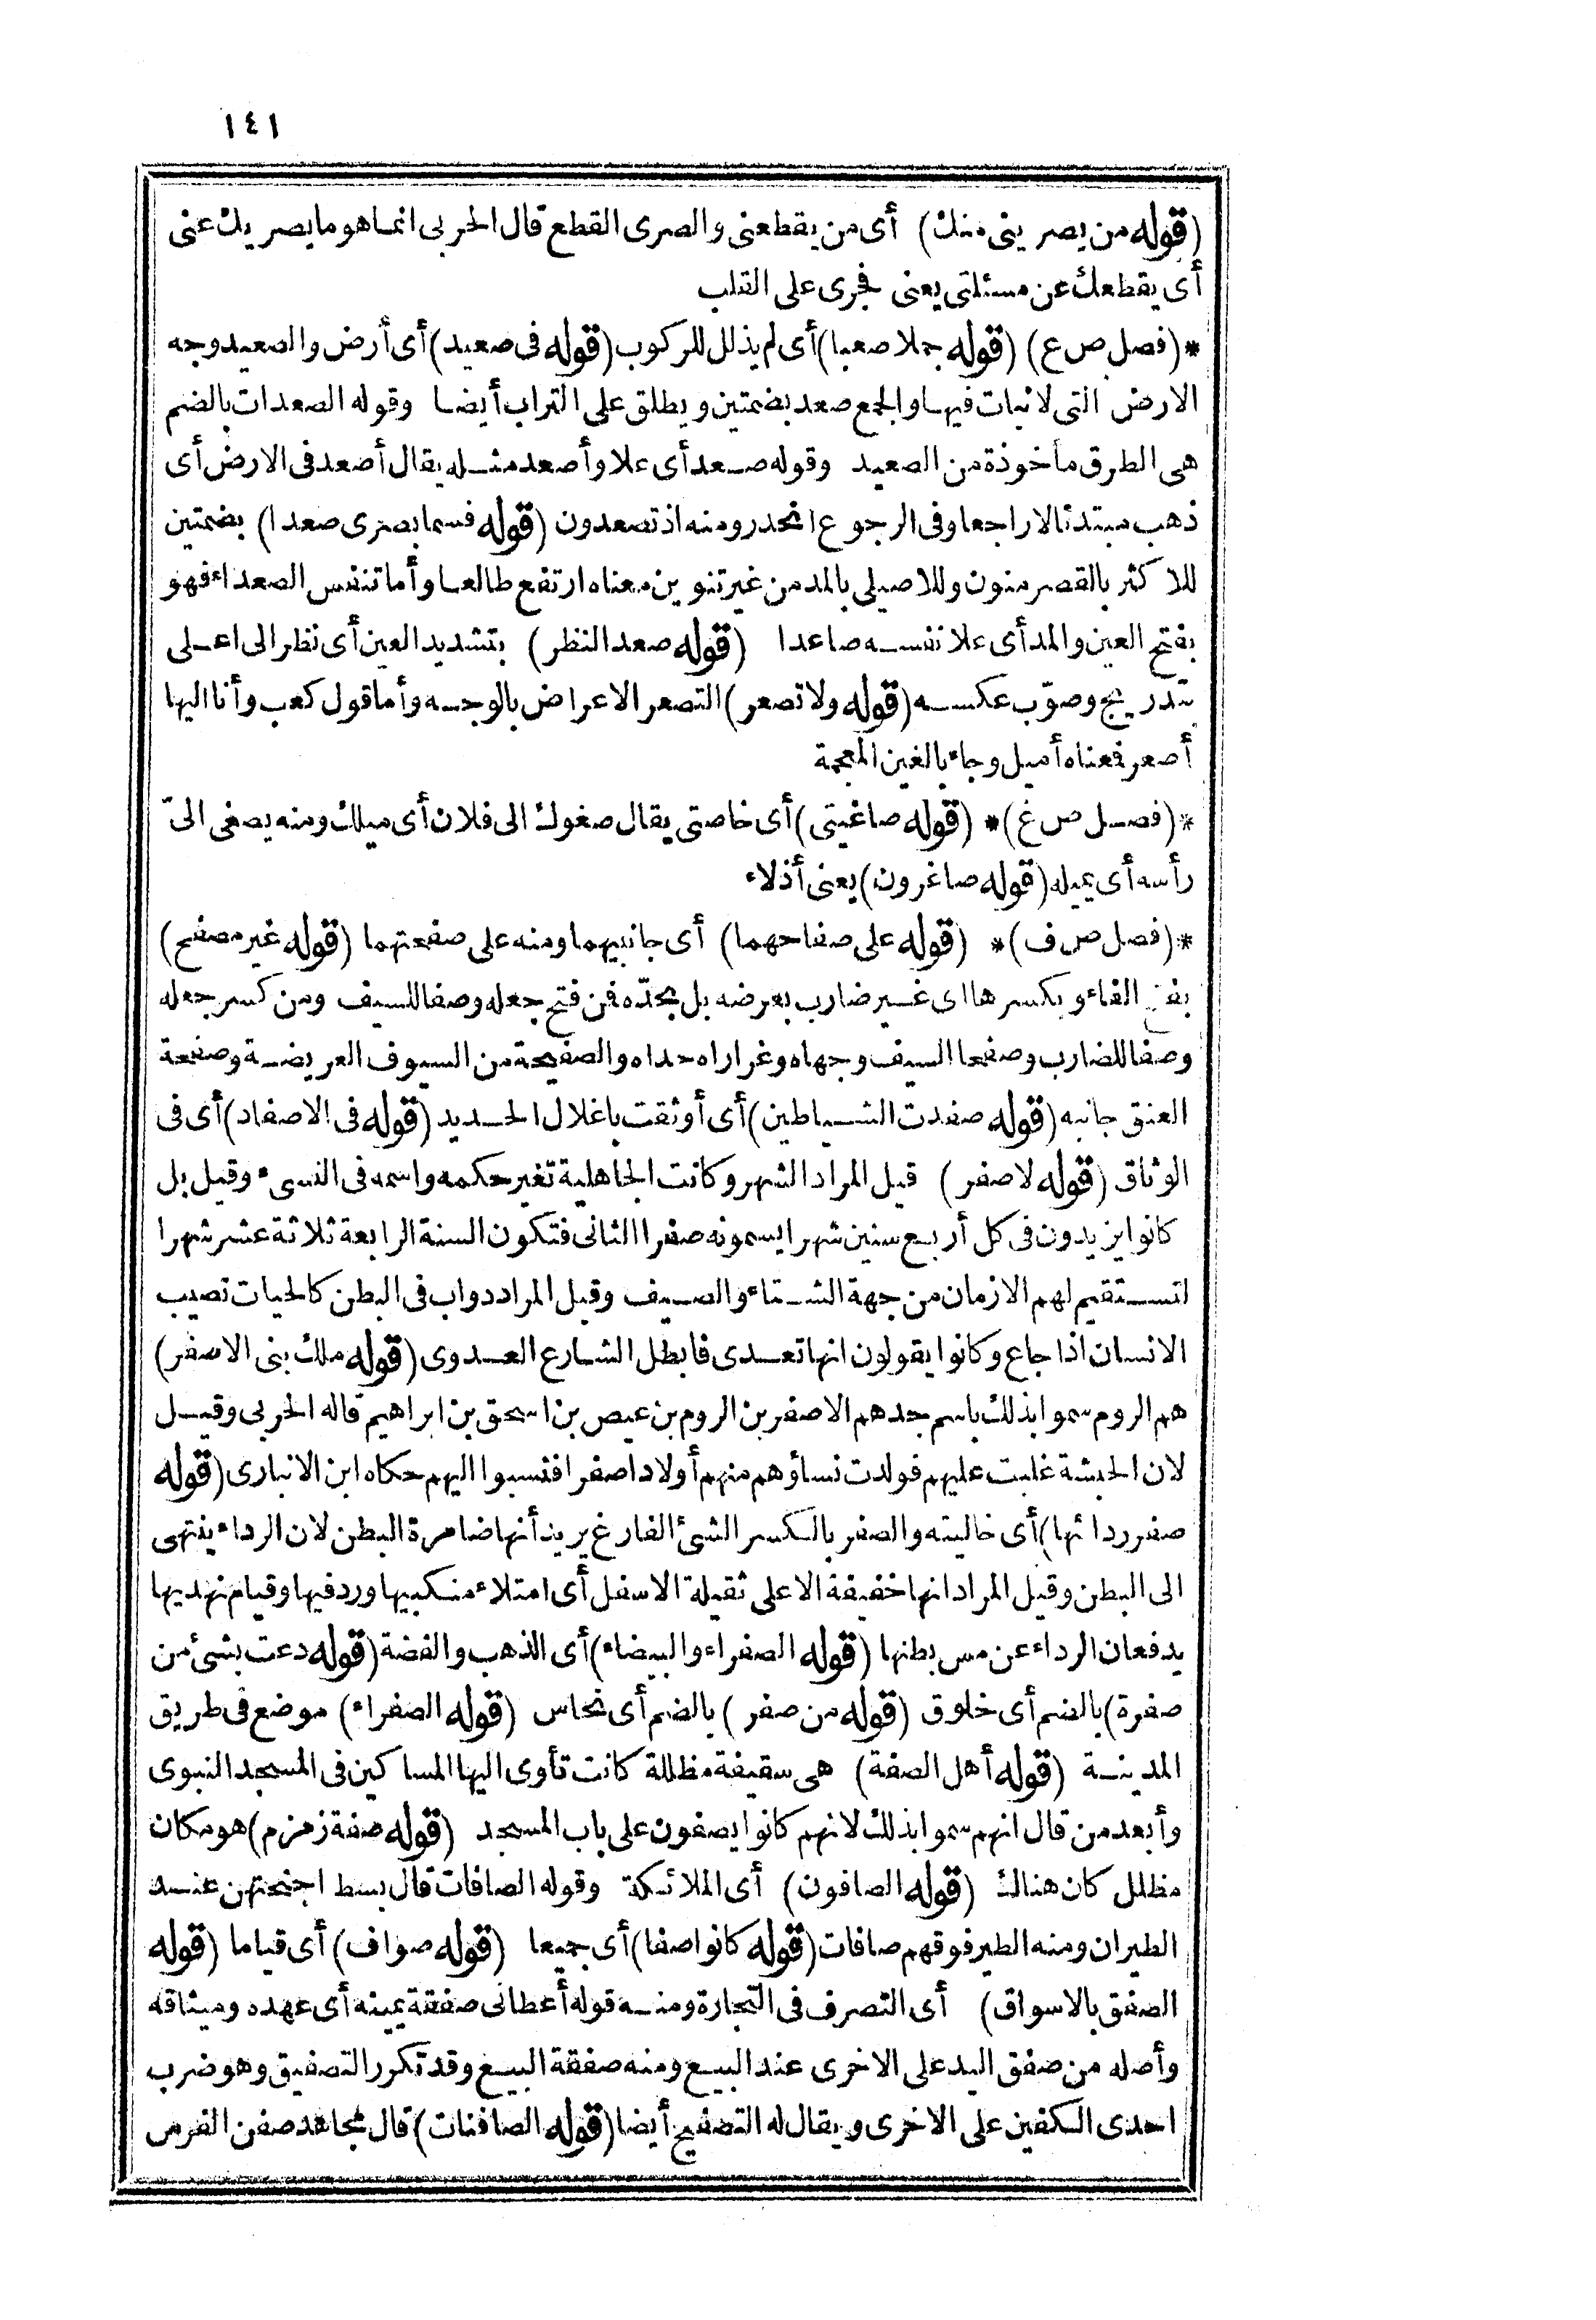 ١٤١
(قوله من يصريني منك) أى من يقطعنى والصرى القطع قال الحربى انما هو ما يصريك عنى
أى يقطعك عن مسئلتى يعنى فجرى على القلب
*(فصل ص ع) (قوله جملا صعبا) أى لم يذلل للركوب (قوله فى صعيد) أى أرض والصعيد وجه
الارض التى لا نبات فيها والجمع صعد بضمتين ويطلق على التراب أيضا وقوله الصعدات بالضم
هى الطرق مأخوذة من الصعيد وقوله صعد أى علا وأصعد مثله يقال أصعد فى الارض أى
ذهب مبتدئا لا راجعا وفى الرجوع انحدر ومنه اذ تصعدون (قوله فسما بصرى صعدا) بضمتين
للاكثر بالقصر منون وللاصيلى بالمد من غير تنوين معناه ارتفع طالعا وأما تنفس الصعداء فهو
بفتح العين والمد أى علا نفسه صاعدا (قوله صعد النظر) بتشديد العين أى نظر الى اعلى
بتدريج وصوّب عكسه (قوله ولا تصعر) التصعر الاعراض بالوجه وأما قول كعب وأنا اليها
أصعر فمعناه أميل وجاء بالغين المعجمة
*(فصل ص غ)* (قوله صاغيتى) أى خاصتى يقال صغوك الى فلان أى ميلك ومنه يصغى الىّ
رأسه أى يميله (قوله صاغرون) يعنى أذلاء
*(فصل ص ف)* (قوله على صفاحهما) أى جانبيهما ومنه على صفحتهما (قوله غير مصفح)
بفتح الفاء وبكسرها اى غير ضارب بعرضه بل بحدّه فمن فتح جعله وصفا للسيف ومن كسر جعله
وصفا للضارب وصفحا السيف وجهاه وغراراه حداه والصفيحة من السيوف العريضة وصفحة
العنق جانبه (قوله صفدت الشياطين) أى أوثقت باغلال الحديد (قوله فى الاصفاد) أى فى
الوثاق (قوله لا صفر) قيل المراد الشهر وكانت الجاهلية تغير حكمه واسمه فى النسىء وقيل بل
كانوا يزيدون فى كل أربع سنين شهرا يسمونه صفرا الثانى فتكون السنة الرابعة ثلاثة عشر شهرا
لتستقيم لهم الازمان من جهة الشتاء والصيف وقيل المراد دواب فى البطن كالحيات تصيب
الانسان اذا جاع وكانوا يقولون انها تعدى فابطل الشارع العدوى (قوله ملك بنى الاصفر)
هم الروم سموا بذلك باسم جدهم الاصفر بن الروم بن عيص بن اسحق بن ابراهيم قاله الحربى وقيل
لان الحبشة غلبت عليهم فولدت نساؤهم منهم أولادا صفرا فنسبوا اليهم حكاه ابن الانبارى (قوله
صفر ردائها) أى خاليته والصفر بالكسر الشئ الفارغ يريد أنها ضامرة البطن لان الرداء ينتهى
الى البطن وقيل المراد انها خفيفة الاعلى ثقيلة الاسفل أى امتلاء منكبيها وردفيها وقيام نهديها
يدفعان الرداء عن مس بطنها (قوله الصفراء والبيضاء) أى الذهب والفضة (قوله دعت بشئ من
صفرة) بالضم أى خلوق (قوله من صفر) بالضم أى نحاس (قوله الصفراء) موضع فى طريق
المدينة (قوله أهل الصفة) هى سقيفة مظللة كانت تأوى اليها المساكين فى المسجد النبوى
وأبعد من قال انهم سموا بذلك لانهم كانوا يصفون على باب المسجد (قوله صفة زمزم) هو مكان
مظلل كان هنالك (قوله الصافون) أى الملائكة وقوله الصافات قال بسط اجنحتهن عند
الطيران ومنه الطير فوقهم صافات (قوله كانوا صفا) أى جميعا (قوله صواف) أى قياما (قوله
الصفق بالاسواق) أى التصرف فى التجارة ومنه قوله أعطانى صفقة يمينه أى عهده وميثاقه
وأصله من صفق اليد على الاخرى عند البيع ومنه صفقة البيع وقد تكرر التصفيق وهو ضرب
احدى الكفين على الاخرى ويقال له التصفيح أيضا (قوله الصافنات) قال مجاهد صفن الفرس